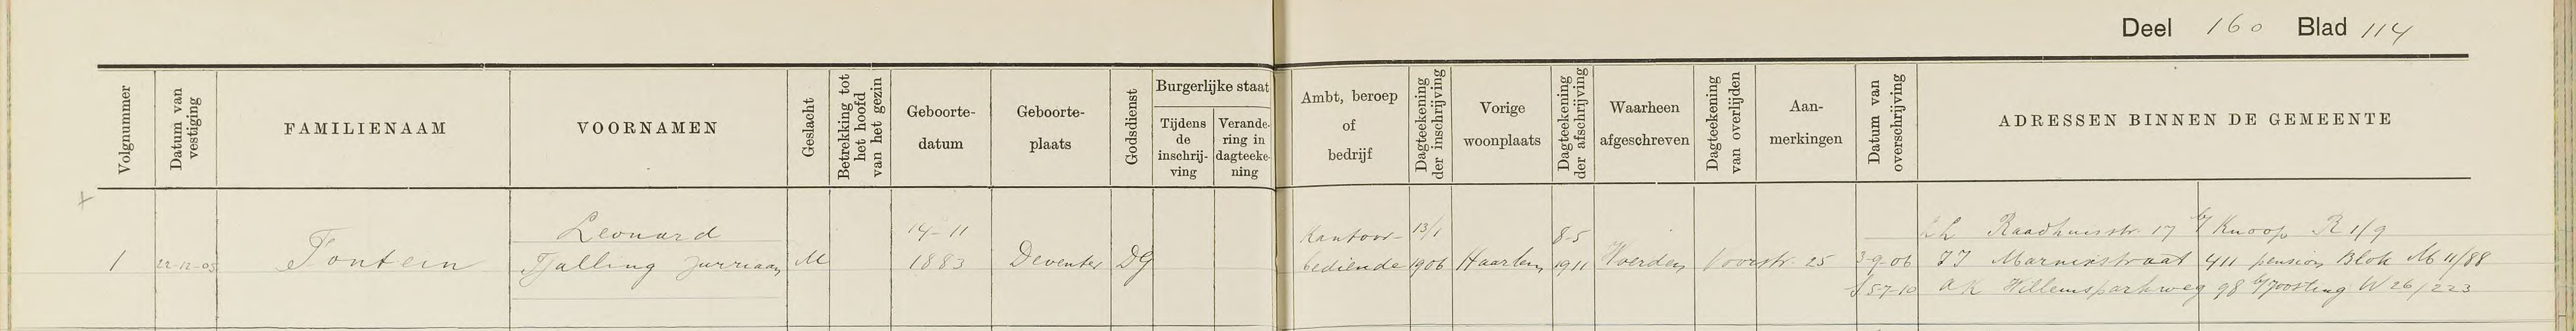 Deel 160 Blad 114
Volgnummer
Datum van vestiging
FAMILIENAAM
VOORNAMEN
Geslacht
Betrekking tot het hoofd van het gezin
Geboorte-
datum
Geboorte-
plaats
Godsdienst
Burgerlijke staat
Tijdens
de
inschrij-
ving
Verande-
ring in
dagteeke-
ning
Ambt, beroep
of
bedrijf
Dagteekening der inschrijving
Vorige
woonplaats
Dagteekening der afschrijving
Waarheen
afgeschreven
Dagteekening van overlijden
Aan-
merkingen
Datum van overschrijving
ADRESSEN BINNEN DE GEMEENTE
Leonard 14-11 Kantoor- 13/1 8-5 Raadhuisstr. 17 b/ Knoop R 1/9
1 22-12-05 Fontein Tjalling Jurriaan M 1883 Deventer DG bediende 1906 Haarlem 1911 Woerden Voorstr. 25 3-9-06 JJ Marnixstraat 411 pension Blok M 11/88
5-7-10 AK Willemsparkweg 98 b/ Joosting W 26/223